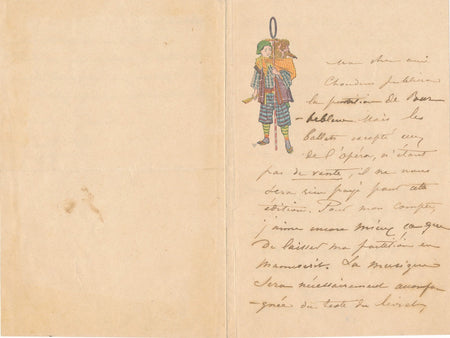 Mon cher ami
Choudens publiera
la partition de Barbe
-bleue. Mais les
ballets excepté ceux
de l'opéra, n'étant
pas de vente, il ne nous
sera rien payé pour cette
édition. Pour mon compte
j'aime encore mieux ça que
de laisser ma partition en
manuscrit. La musique
sera nécessairement accompa
-gnée du texte du livret